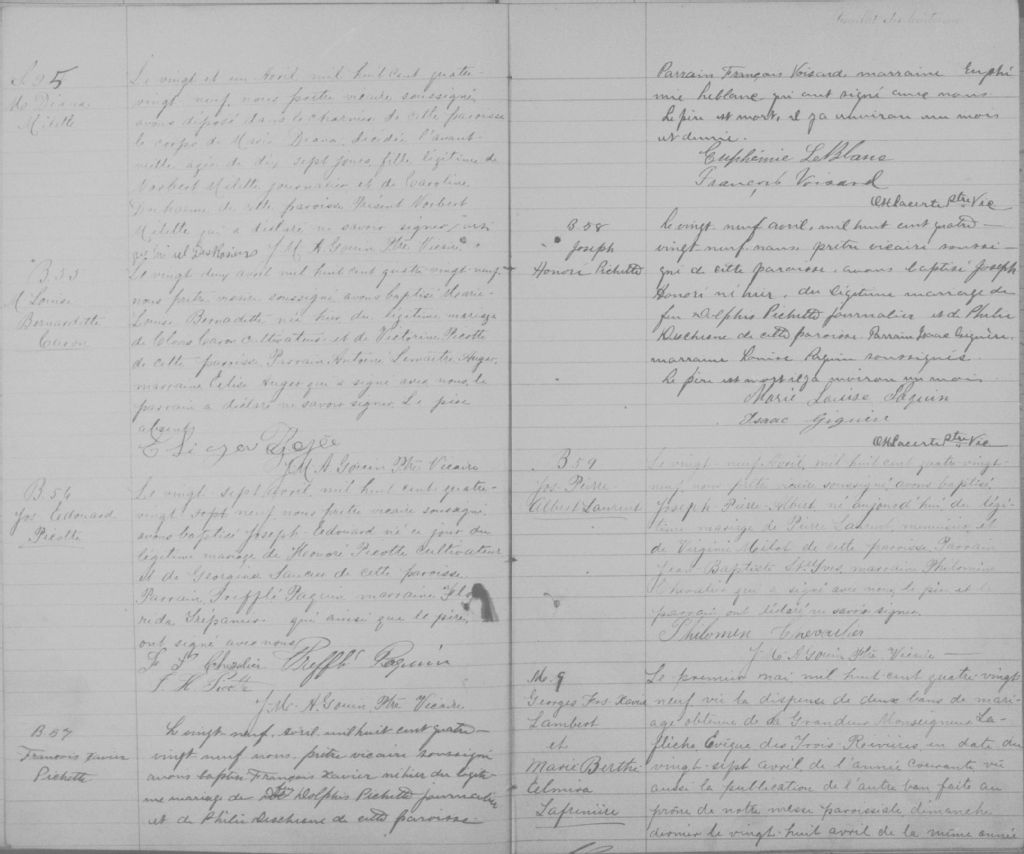 S. 25
de Diana
Milette
Le vingt et un Avril mil huit cent quatre-
vingt neuf nous prêtre vicaire soussigné
avons déposé dans le charnier de cette paroisse
le corps de Marie Diana décédée l'avant
veille agée de dix sept jours, fille légitime de
Norbert Milette journalier et de Caroline
Duchaine de cette paroisse. Présent Norbert
Milette qui a déclaré ne savoir signer
J. M. A Gouin Ptre Vicaire
B. 55
M Louise
Bernardette
Caron
Le vingt deux avril mil huit cent quatre vingt neuf
nous prêtre vicaire soussigné avons baptisé Marie
Louise Bernadette née hier du légitime mariage
de Cleos Caron cultivateur et de Victorine Picotte
de cette paroisse. Parrain Antoine Lemaitre Auger,
marraine Elise Auger qui a signé avec nous, le
parrain a déclaré ne savoir signer. Le père
absent.
J. M. A Gouin Ptre Vicaire
B. 56
Jos Edouard
Picotte
Le vingt sept avril mil huit cent quatre-
vingt neuf nous prêtre vicaire soussigné
avons baptisé Joseph Edouard né ce jour du
légitime mariage de Honoré Picotte Cultivateur
et de Georgina Saucier de cette paroisse.
Parrain, Trefflé Paquin marraine Flo
reda Trépanier qui ainsi que le père,
ont signé avec nous
Trefflé Paquin
J. M. A. Gouin Ptre Vicaire
B. 57
François Xavier
Pichette
Le vingt neuf avril mil huit cent quatre-
vingt neuf nous prêtre vicaire soussigné
avons baptisé François Xavier né hier du légiti-
me mariage de Dolphis Pichette journalier
et de Philie Deschesne de cette paroisse
Parrain François Voisard marraine Euphé
mie Leblanc qui ont signé avec nous
Le père est mort, il y a environ un mois
et demie.
Euphémie LeBlanc
François Voisard
OH Lacerte ptre Vic
B 58
Joseph
Honoré Pichette
Le vingt neuf avril, mil huit cent quatre-
vingt neuf nous prêtre vicaire soussi-
gné de cette paroisse, avons baptisé Joseph
Honoré né hier, du légitime mariage de
feu Dolphis Pichette journalier et de Philie
Deschesne de cette paroisse Parrain Isaac Giguère,
marraine Louise Paquin soussignés.
Le père est mort il y a environ un mois
Marie Louise Paquin
Isaac Giguère
OH Lacerte ptre Vic
B 59
Jos Pierre
Albert Laurent
Le vingt neuf Avril, mil huit cent quatre vingt-
neuf nous prêtre vicaire soussigné avons baptisé
Joseph Pierre Albert né aujourd'hui du légi-
time mariage de Pierre Laurent, menuisier et
de Virginie Milot de cette paroisse. Parrain
Jean Baptiste St Yves, marraine Philomène
Chevalier qui a signé avec nous, le père et le
parrain ont déclaré ne savoir signer.
Philomen Chevalier
J. M. A Gouin Ptre Vicaire
M. 9
Georges Frs Xavier
Lambert
et
Marie Berthe
Elmira
Lafrenière
Le premier mai mil huit cent quatre vingt
neuf vu la dispense de deux bans de mari-
age obtenue de sa Grandeur Monseigneur La-
flèche, Evêque des Trois-Rivières, en date du
vingt-sept avril de l'année courante, vu
aussi la publication de l'autre ban faite au
prône de notre messe paroissiale dimanche
dernier le vingt-huit avril de la même année